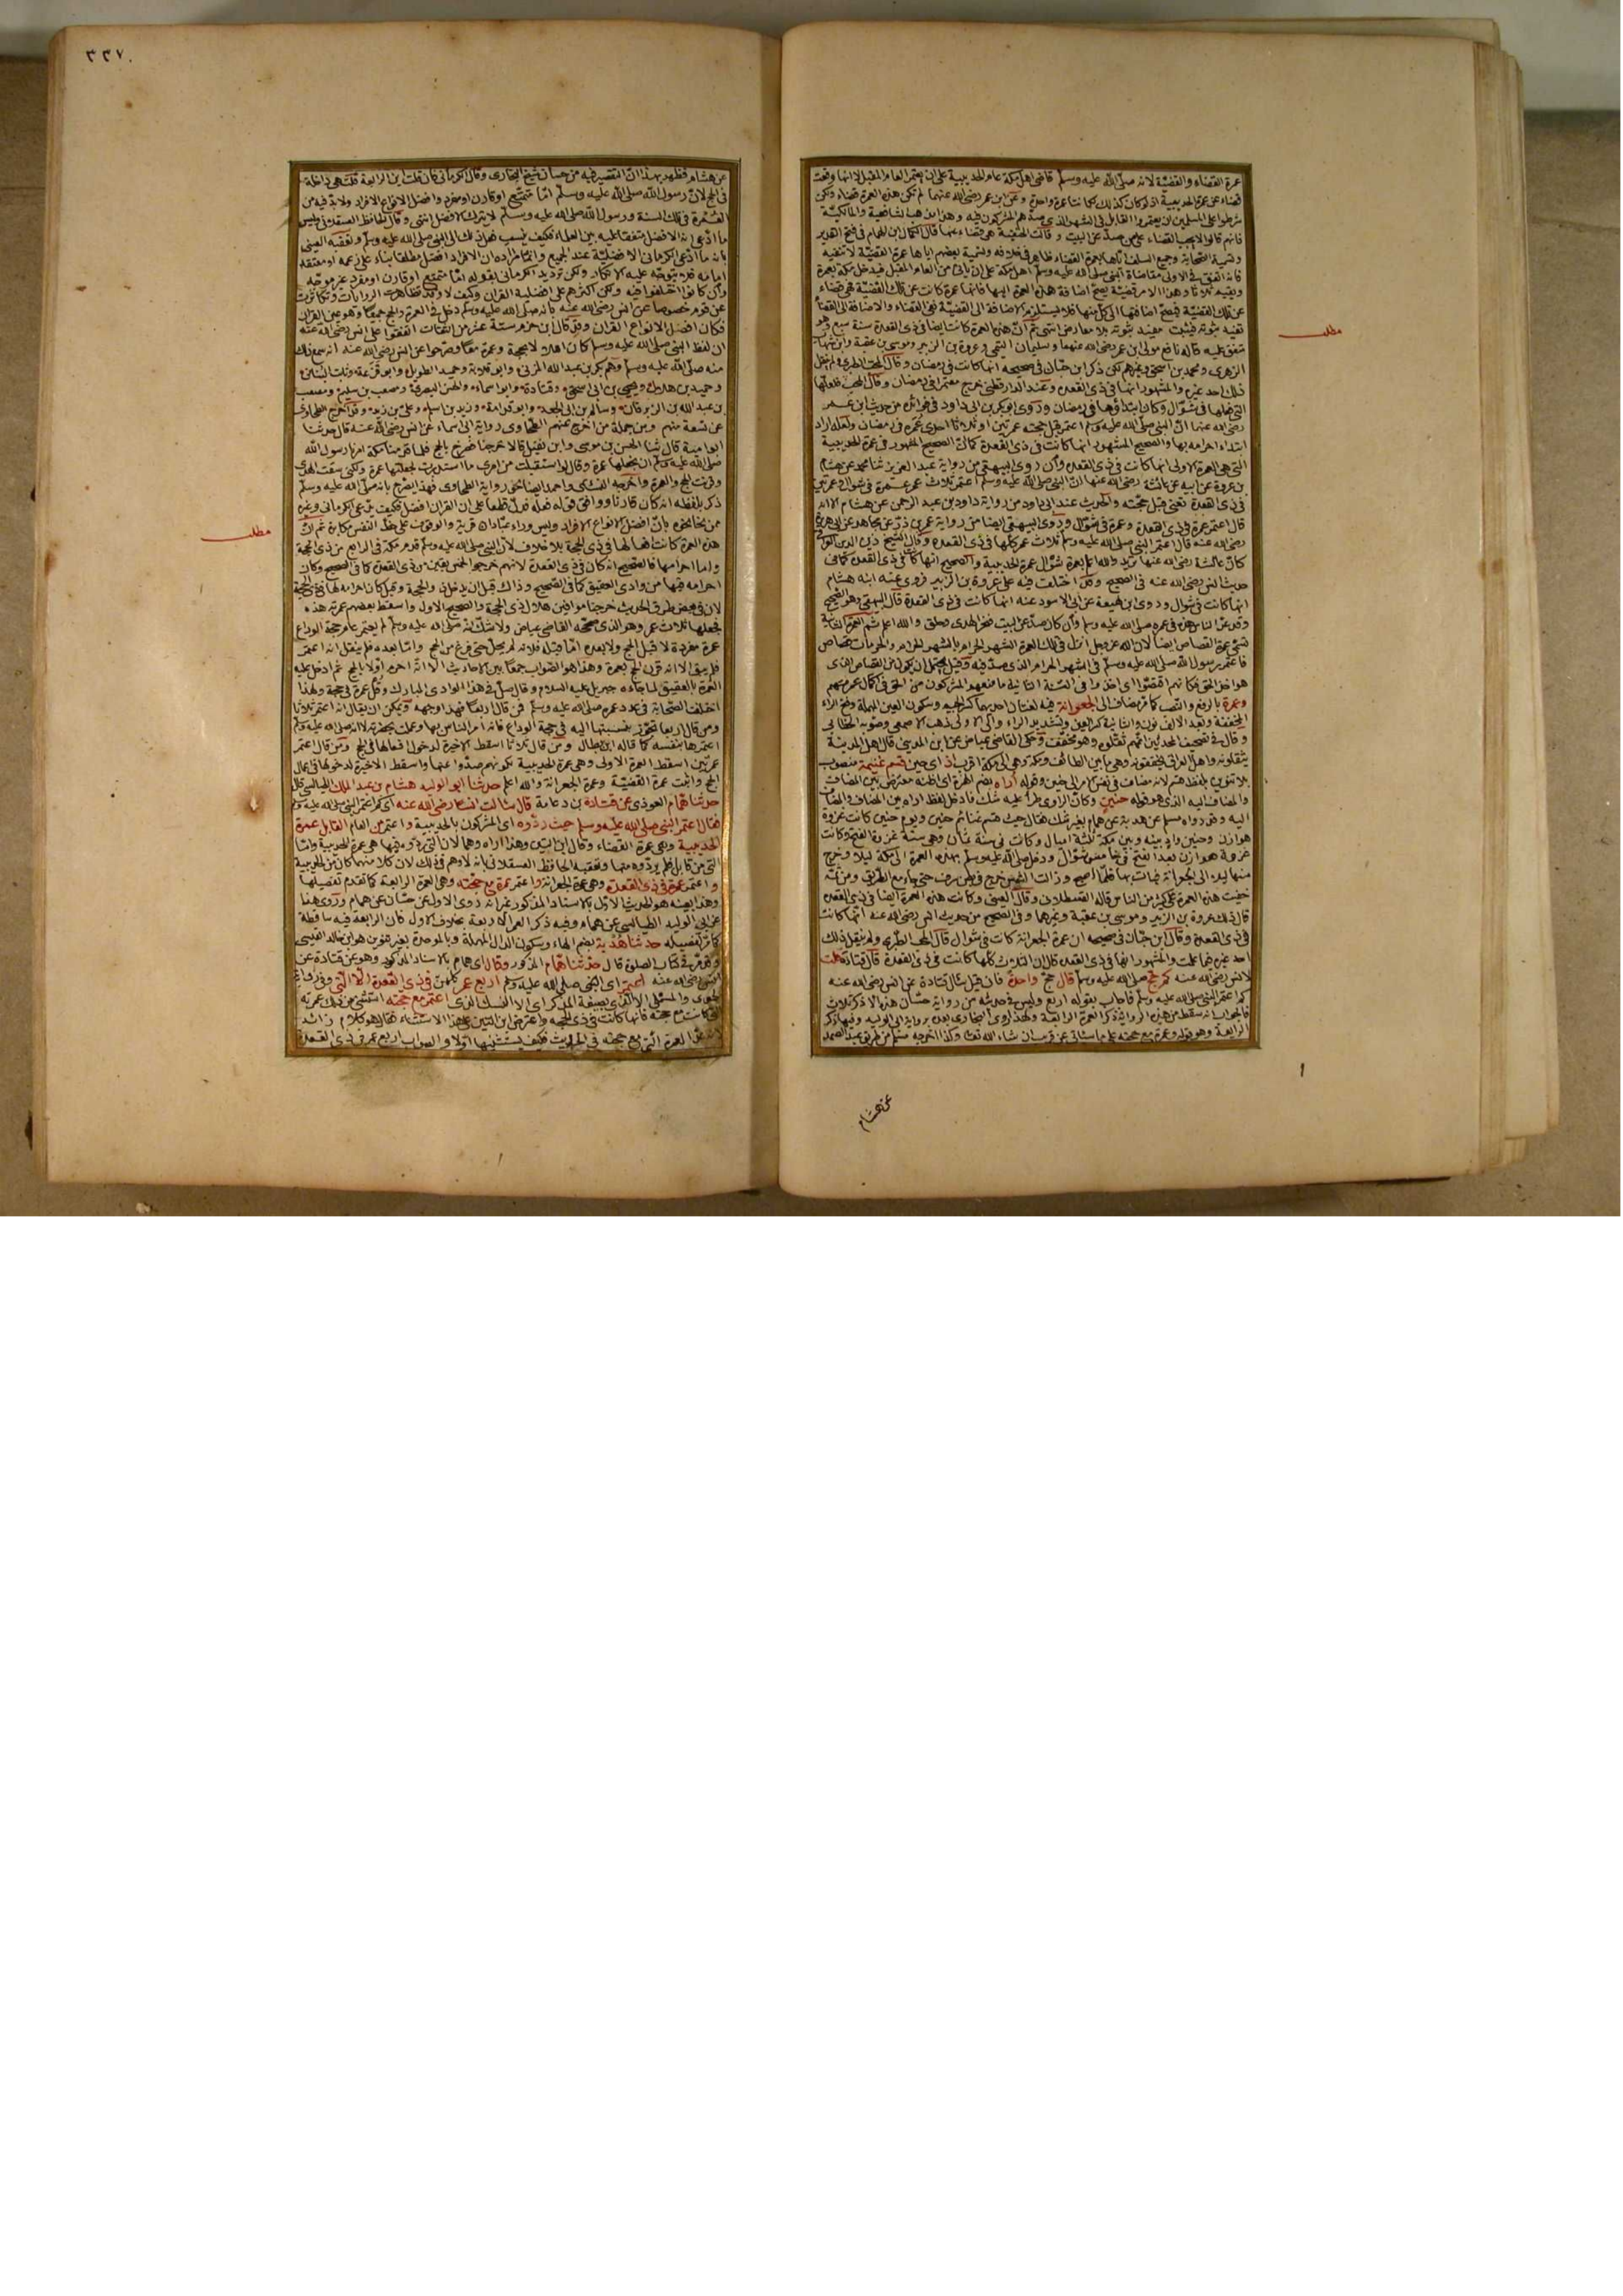 عمرة القضاء والقضية لانه صلى الله عليه وسلم قاضى اهل مكة عام الحديبية على ان يعتمر العام المقبل لا انها وقعت
قضاء عن عمرة الحديبية اذ لو كان كذلك لكانتا عمرة واحدة وعن ابن عمر رضي الله عنهما لم تكن هذه العمرة قضاء ولكن
شرطوا على المسلمين ان يعتمروا القابل في الشهر الذي صدهم المشركون فيه وهذا مذهب الشافعية والمالكية
فانهم قالوا لا يجب القضاء على من صد عن البيت وقالت الحنفية هي قضاء عنها قال الكمال ابن الهمام في فتح القدير
وتسمية الصحابة وجميع السلف اياها بعمرة القضاء ظاهر في خلافه وتسمية بعضهم اياها عمرة القضية لا تنفيه
فانه اتفق في الاولى مقاضاة النبي صلى الله عليه وسلم اهل مكة على ان يأتي من العام المقبل فيدخل مكة بعمرة
ويقيم ثلاثا وهذا الامر قضية يصح اضافة هذه العمرة اليها فانها عمرة كانت عن تلك القضية فهي قضاء
عن تلك القضية فيصح اضافتها الى كل منهما فلا يستلزم الاضافة الى القضية نفي القضاء والاضافة الى القضاء
تفيد ثبوته فيثبت مفيد ثبوته بلا معارض انتهى ثم ان هذه العمرة كانت ايضا في ذي القعدة سنة سبع وهو
متفق عليه قاله نافع مولى ابن عمر رضي الله عنهما وسليمان التيمي وعروة بن الزبير وموسى بن عقبة وابن شهاب
الزهري ومحمد بن اسحق وغيرهم لكن ذكر ابن حبان في صحيحه انها كانت في رمضان وقال المحب الطبري ولم ينقل
ذلك احد غيره والمشهور انها في ذي القعدة وعند الدارقطني خرج معتمرا في رمضان وقال المحب فلعلها
التي فعلها في شوال وكان ابتداؤها في رمضان وروى ابو بكر بن ابي داود في فوائده من حديث ابن عمر
رضي الله عنهما ان النبي صلى الله عليه وسلم اعتمر قبل حجته عمرتين او ثلاثا احدى عمره في رمضان ولعله اراد
ابتداء احرامه بها والصحيح المشهور انها كانت في ذي القعدة كما ان الصحيح المشهور في عمرة الحديبية
التي هي العمرة الاولى انها كانت في ذي القعدة وان روى البيهقي من رواية عبد العزيز بن محمد عن هشام
بن عروة عن ابيه عن عائشة رضي الله عنها ان النبي صلى الله عليه وسلم اعتمر ثلاث عمر عمرة في شوال وعمرتين
في ذي القعدة تعني قبل حجته والحديث عند ابي داود من رواية داود بن عبد الرحمن عن هشام الا انه
قال اعتمر عمرة في ذي القعدة وعمرة في شوال وروى البيهقي ايضا من رواية عمر بن ذر عن مجاهد عن ابي هريرة
رضي الله عنه قال اعتمر النبي صلى الله عليه وسلم ثلاث عمر كلها في ذي القعدة وقال الشيخ زين الدين العراقي
كان عائشة رضي الله عنها تريد والله اعلم بعمرة شوال عمرة الحديبية والصحيح انها كانت في ذي القعدة كما في
حديث انس رضي الله عنه في الصحيح وقد اختلف فيه على عروة بن الزبير فروى عنه ابنه هشام
انها كانت في شوال وروى ابن لهيعة عن ابي الاسود عنه انها كانت في ذي القعدة قال البيهقي وهو الصحيح
وقد عد الناس هذه في عمره صلى الله عليه وسلم وان كان صد عن البيت فنحر الهدي وحلق والله اعلم ثم العمرة الثانية
تسمى عمرة القصاص ايضا لان الله عز وجل انزل في تلك العمرة الشهر الحرام بالشهر الحرام والحرمات قصاص
فاعتمر رسول الله صلى الله عليه وسلم في الشهر الحرام الذي صد فيه وقيل يحتمل ان يكون من القصاص الذي
هو اخذ الحق فكانهم اقتصوا اي اخذوا في السنة الثانية ما منعهم المشركون من الحق في كمال عمرتهم
وعمرة بالرفع والنصب كما مر مضاف الى الجعرانة فيه لغتان احديهما كسر الجيم وسكون العين المهملة وفتح الراء
المخففة وبعد الالف نون والثانية كسر العين وتشديد الراء والى الاولى ذهب الاصمعي وصوبه الخطابي
وقال في تصحيف المحدثين انهم ثقلوه وهو مخفف وحكى القاضي عياض عن ابن المديني قال اهل المدينة
يثقلونه واهل العراق يخففونه وهي ما بين الطائف ومكة وهي الى مكة اقرب اذ اي حين قسم غنيمة منصوب
بلا تنوين بلفظ قسم لانه مضاف في نفس الامر الى حنين وقوله اراه بضم الهمزة اي اظنه معترض بين المضاف
والمضاف اليه الذي هو قوله حنين وكان الراوي طرأ عليه شك فادخل لفظ اراه بين المضاف والمضاف
اليه وقد رواه مسلم عن هدبة عن همام بغير شك فقال حيث قسم غنائم حنين ويوم حنين كانت غزوة
هوازن وحنين واد بينه وبين مكة ثلثة اميال وكانت في سنة ثمان وهي سنة غزوة الفتح وكانت
غزوة هوازن بعد الفتح في خامس شوال ودخل صلى الله عليه وسلم بهذه العمرة الى مكة ليلا وخرج
منها ليلا الى الجعرانة فبات بها فلما اصبح وزالت الشمس خرج في بطن سرف حتى جاء مع الطريق ومن ثمه
خفيت هذه العمرة على كثير من الناس قاله القسطلاني وقال العيني وكانت هذه العمرة ايضا في ذي القعدة
قال ذلك عروة بن الزبير وموسى بن عقبة وغيرهما وفي الصحيح من حديث انس رضي الله عنه انها كانت
في ذي القعدة وقال ابن حبان في صحيحه ان عمرة الجعرانة كانت في شوال قال المحب الطبري ولم ينقل ذلك
احد غيره فيما علمت والمشهور انها في ذي القعدة قال ان الثلاث كلها كانت في ذي القعدة قال قتادة قلت
لانس رضي الله عنه كم حج صلى الله عليه وسلم قال حج واحدة فان قيل سأل قتادة عن انس رضي الله عنه
كم اعتمر النبي صلى الله عليه وسلم فاجاب بقوله اربع وليس في حديثه من رواية حسان هذه الا ذكر ثلاث
فالجواب انه سقط من هذه الرواية ذكر العمرة الرابعة ولهذا روى البخاري بعده برواية ابي الوليد وفيها ذكر
الرابعة وهو قوله وعمرة مع حجته على ما سيأتي عن قريب ان شاء الله تعالى وكذا اخرجه مسلم من طريق عبد الصمد
مطلب
عن هشام
٣٣٧
عن هشام فظهر بهذا ان التقصير فيه من حسان شيخ البخاري وقال الكرماني فان قلت اين الرابعة قلت هي داخلة
في الحج لان رسول الله صلى الله عليه وسلم اما متمتع او قارن او مفرد وافضل الانواع الافراد ولا بد فيه من
العمرة في تلك السنة ورسول الله صلى الله عليه وسلم لا يترك الافضل انتهى وقال الحافظ العسقلاني وليس
ما ادعى انه الافضل متفقا عليه بين العلماء فكيف ينسب فعل ذلك الى النبي صلى الله عليه وسلم وتعقبه العيني
بانه ما ادعى الكرماني الافضلية عند الجميع وانما مراده ان الافراد افضل مطلقا بناء على زعمه او معتقد
امامه فلا يتوجه عليه الانكار ولكن ترديد الكرماني بقوله اما متمتع او قارن او مفرد غير موجه
وان كانوا اختلفوا فيه ولكن اكثرهم على افضلية القران وكيف لا وقد تظاهرت الروايات وتكاثرت
عن قوم خصوصا عن انس رضي الله عنه بانه صلى الله عليه وسلم دخل في العمرة والحج جميعا وهو عين القران
فكان افضل الانواع القران وقد قال ابن حزم ستة عشر من الثقات اتفقوا على انس رضي الله عنه
ان لفظ النبي صلى الله عليه وسلم كان اهلالا بحجة وعمرة معا وصرحوا عن انس رضي الله عنه انه سمع ذلك
منه صلى الله عليه وسلم وهم بكر بن عبد الله المزني وابو قلابة وحميد الطويل وابو قزعة وثابت البناني
وحميد بن هلال ويحيى بن ابي اسحق وقتادة وابو اسماء والحسن البصري ومصعب بن سليم ومصعب
بن عبد الله بن الزبرقان وسالم بن ابي الجعد وابو قدامة وزيد بن اسلم وعلي بن زيد وقد اخرج الطحاوي
عن تسعة منهم ومن جملة من اخرج عنهم الطحاوي رواية ابي اسماء عن انس رضي الله عنه قال حدثنا
ابو امية قال ثنا الحسن بن موسى وابن نفيل قالا خرجنا نصرخ بالحج فلما قدمنا مكة امرنا رسول الله
صلى الله عليه وسلم ان نجعلها عمرة وقال لو استقبلت من امري ما استدبرت لجعلتها عمرة ولكني سقت الهدي
وقرنت الحج والعمرة واخرجه النسائي واحمد ايضا نحو رواية الطحاوي فهذا يصرح بانه صلى الله عليه وسلم
ذكر بلفظه انه كان قارنا ووافق قوله فعله فدل قطعا على ان القران افضل فكيف يدعي الكرماني وغيره
ممن نحا نحوه بان افضل الانواع الافراد وليس وراء عبادان قرية والوقوف على حظ النفس مكابرة ثم ان
هذه العمرة كانت افعالها في ذي الحجة بلا خلاف لان النبي صلى الله عليه وسلم قدم مكة في الرابع من ذي الحجة
واما احرامها فالصحيح انه كان في ذي القعدة لانهم خرجوا لخمس بقين من ذي القعدة كما في الصحيح وكان
احرامه فيها من وادي العقيق كما في الصحيح وذلك قبل ان يدخل ذو الحجة وقيل كان احرامه لها في ذي الحجة
لان في بعض طرق الحديث خرجنا موافين هلال ذي الحجة والصحيح الاول واسقط بعضهم عمرته هذه
فجعلها ثلاث عمر وهو الذي صححه القاضي عياض ولا شك انه صلى الله عليه وسلم لم يعتمر عام حجة الوداع
عمرة مفردة لا قبل الحج ولا بعده اما قبله فلانه لم يحل حتى فرغ من الحج واما بعده فلم ينقل انه اعتمر
فلم يبق الا انه قرن الحج بعمرة وهذا هو الصواب جمعا بين الاحاديث الا انه احرم اولا بالحج ثم ادخل عليه
العمرة بالعقيق لما جاءه جبريل عليه السلام وقال صل في هذا الوادي المبارك وقل عمرة في حجة ولهذا
اختلف الصحابة في عدد عمره صلى الله عليه وسلم فمن قال اربعا فهذا وجهه ويمكن ان يقال انه اعتمر ثلاثا
ومن قال اربعا تجوز بنسبتها اليه في حجة الوداع فانه امر الناس بها وعملت بحضرته لا انه صلى الله عليه وسلم
اعتمرها بنفسه كما قاله ابن بطال ومن قال ثلاثا اسقط الاخيرة لدخول افعالها في الحج ومن قال اعتمر
عمرتين اسقط العمرة الاولى وهي عمرة الحديبية لكونهم صدوا عنها واسقط الاخيرة لدخولها في اعمال
الحج واثبت عمرة القضية وعمرة الجعرانة والله اعلم حدثنا ابو الوليد هشام بن عبد الملك الطيالسي قال
حدثنا همام العوذي عن قتادة بن دعامة قال سألت انسا رضي الله عنه اي كم اعتمر النبي صلى الله عليه وسلم
فقال اعتمر النبي صلى الله عليه وسلم حيث ردوه اي المشركون بالحديبية واعتمر من العام القابل عمرة
الحديبية وهي عمرة القضاء وقال ابن التين وهذا اراه وهما لان التي ردوه فيها هي عمرة الحديبية واما
التي من قابل فلم يردوه منها وتعقبه الحافظ العسقلاني بانه لا وهم في ذلك لان كلا منهما كان من الحديبية
واعتمر عمرة في ذي القعدة وهي عمرة الجعرانة واعتمر عمرة مع حجته وهي العمرة الرابعة كما تقدم تفصيلها
وهذا بعينه هو الحديث الاول بالاسناد المذكور غير انه روى الاول عن حسان عن همام وروى هنا
عن ابي الوليد الطيالسي عن همام وفيه ذكر العمر الاربعة بخلاف الاول فان الرابعة فيه ساقطة
كما مر تفصيله حدثنا هدبة بضم الهاء وسكون الدال المهملة وبالموحدة بغير تنوين هو ابن خالد القيسي
وقد مر في كتاب الصلوة قال حدثنا همام المذكور وقال اي همام بالاسناد المذكور وهو عن قتادة عن
انس رضي الله عنه اعتمر اي النبي صلى الله عليه وسلم اربع عمر كلهن في ذي القعدة الا التي وفي رواية
الحموي والمستملي الا الذي بصيغة المذكر اي الا النسك الذي اعتمر مع حجته استثنى من ذلك عمرته
التي كانت مع حجته فانها كانت في ذي الحجة واعترض ابن التين على هذا الاستثناء فقال هو كلام زائد
لانه عد العمرة التي مع حجته في الحديث فكيف يستثنيها اولا والصواب اربع عمر في ذي القعدة
مطلب